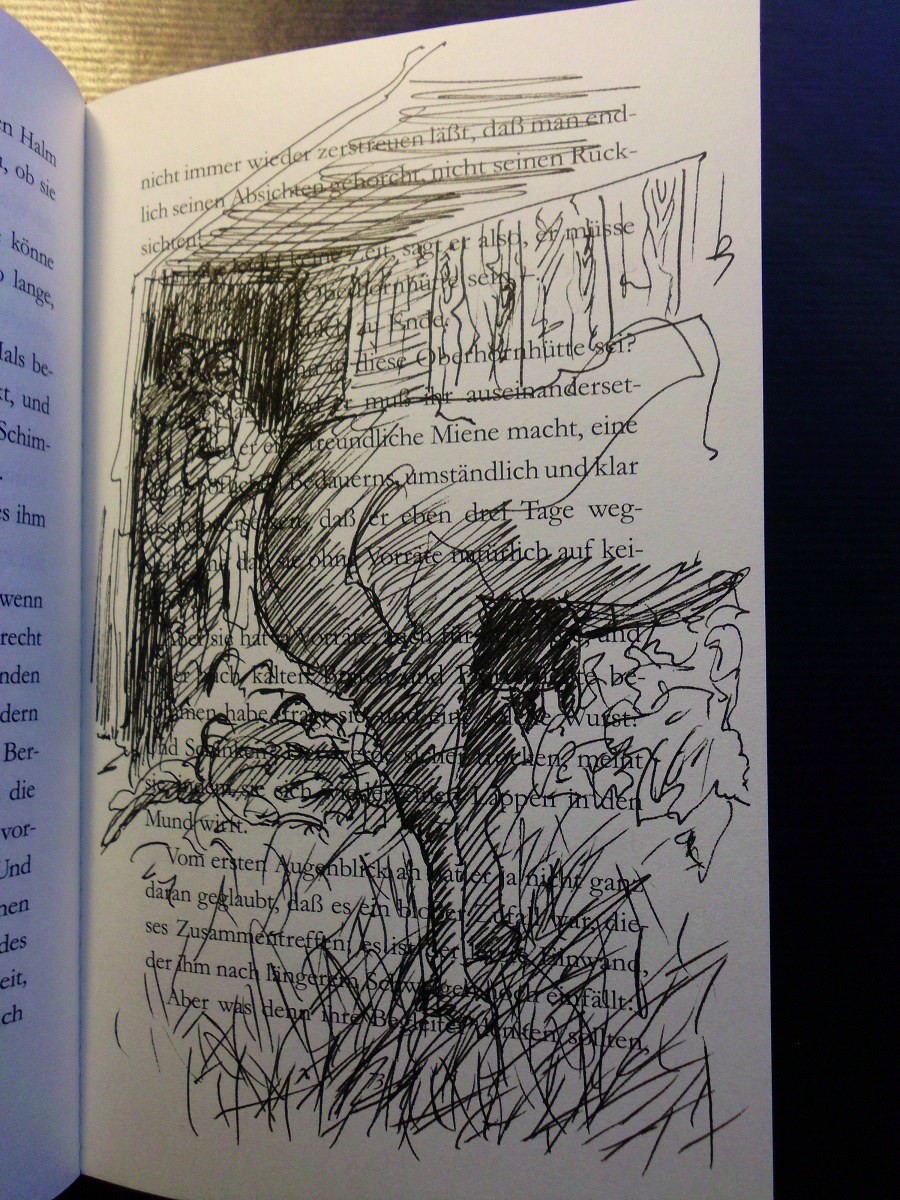 en Halm
, ob sie
könne
lange,
Hals be-
kt, und
Schim-
es ihm
wenn
recht
nden
dern
Ber-
die
vor-
Und
nen
des
eit,
ch
nicht immer wieder zerstreuen läßt, daß man end-
lich seinen Absichten gehorcht, nicht seinen Rück-
sichten!
keine Zeit, sagt er also, er müsse
Oberhornhütte sein.
zu Ende.
in diese Oberhornhütte sei?
und er muß ihr auseinanderset-
er freundliche Miene macht, eine
Bedauerns, umständlich und klar
daß er eben drei Tage weg-
und daß sie ohne Vorräte natürlich auf kei-
Aber sie hat ja Vorräte, auch für und
er auch kalten und be-
kommen habe, fragt sie, und eine Wurst?
Und Schinken? Der werde sicher trocken, meint
sie, indem sie sich einen Lappen in den
Mund wirft.
Vom ersten Augenblick an hat er ja nicht ganz
daran geglaubt, daß es ein bloßer Zufall war, die-
ses Zusammentreffen; es ist der Einwand,
der ihm nach längerem Schweigen noch einfällt:
Aber was denn ihre Begleiter denken sollten,